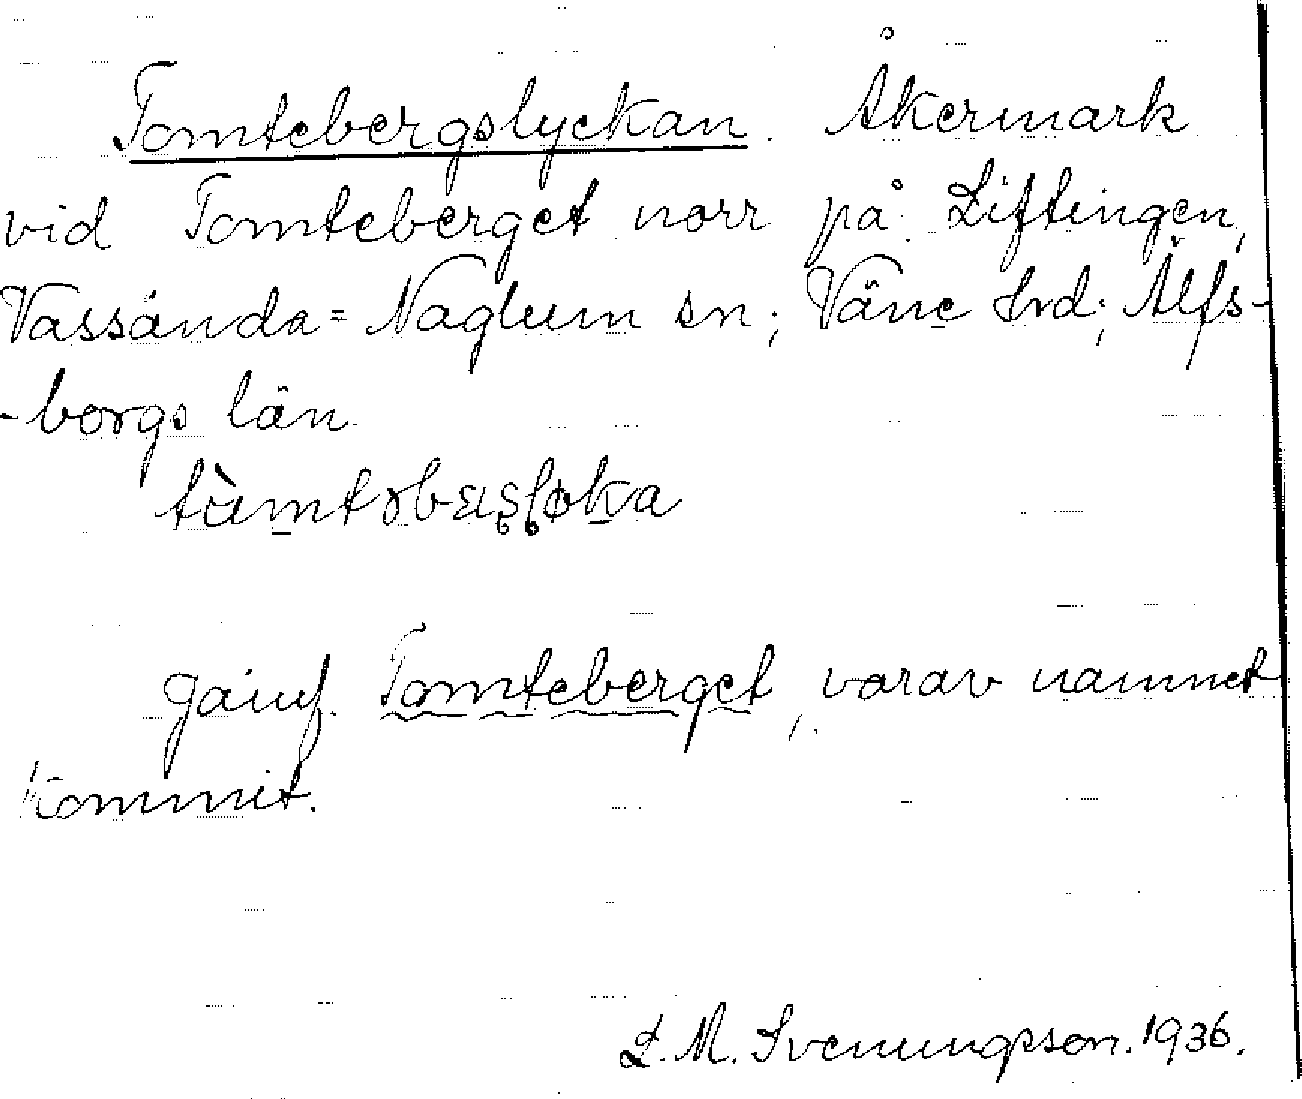 Tomtebergslyckan. Åkermark
vid Tomteberget norr på Liftingen,
Vassända=Naglum sn; Väne hrd; Älfs-
-borgs län
jämf. Tomteberget, varav namnet
kommit.
L. M. Svenungsson. 1936.